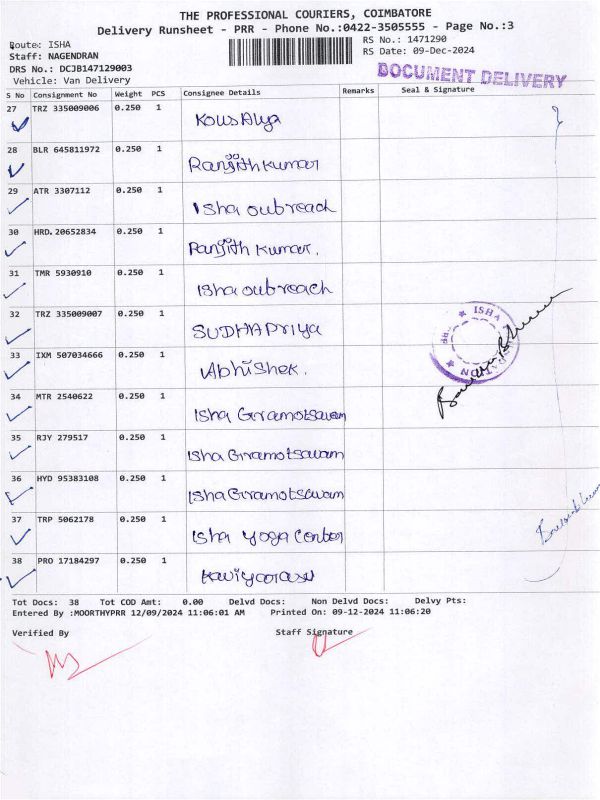 THE PROFESSIONAL COURIERS, COIMBATORE
Delivery Runsheet - PRR - Phone No.:0422-3505555 - Page No.:3
Route: ISHA
RS No.: 1471290
Staff: NAGENDRAN
RS Date: 09-Dec-2024
DRS No.: DCJB147129003
Vehicle: Van Delivery
DOCUMENT DELIVERY
S No Consignment No Weight PCS Consignee Details Remarks Seal & Signature
27 TRZ 335009006 0.250 1 Kousalya
28 BLR 645811972 0.250 1 Ranjith kumar
29 ATR 3307112 0.250 1 Isha outreach
30 HRD.20652834 0.250 1 Ranjith kumar.
31 TMR 5930910 0.250 1 Isha outreach
32 TRZ 335009007 0.250 1 SUDHAPriya
33 IXM 507034666 0.250 1 Abhishek.
34 MTR 2540622 0.250 1 Isha Gramotsavam
35 RJY 279517 0.250 1 Isha Gramotsavam
36 HYD 95383108 0.250 1 Isha Gramotsavam
37 TRP 5062178 0.250 1 Isha yoga Center
38 PRO 17184297 0.250 1 Kaviyarasu
ISHA
Tot Docs: 38 Tot COD Amt: 0.00 Delvd Docs: Non Delvd Docs: Delvy Pts:
Entered By :MOORTHYPRR 12/09/2024 11:06:01 AM Printed On: 09-12-2024 11:06:20
Verified By Staff Signature